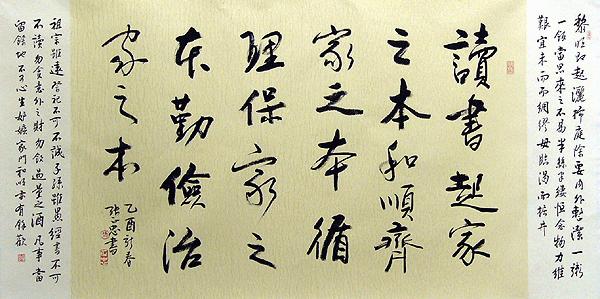 黎明即起灑掃庭除要内外整潔一粥
一飯當思來之不易半絲半縷恒念物力維
艱宜未雨而綢繆毋臨渴而掘井
讀書起家
之本和順齊
家之本循
理保家之
本勤儉治
家之本
乙酉新春
書
祖宗雖遠祭祀不可不誠子孫雖愚經書不可
不讀勿貪意外之財勿飲過量之酒凡事當
留餘地不可心生妒嫉家門和順亦有餘歡